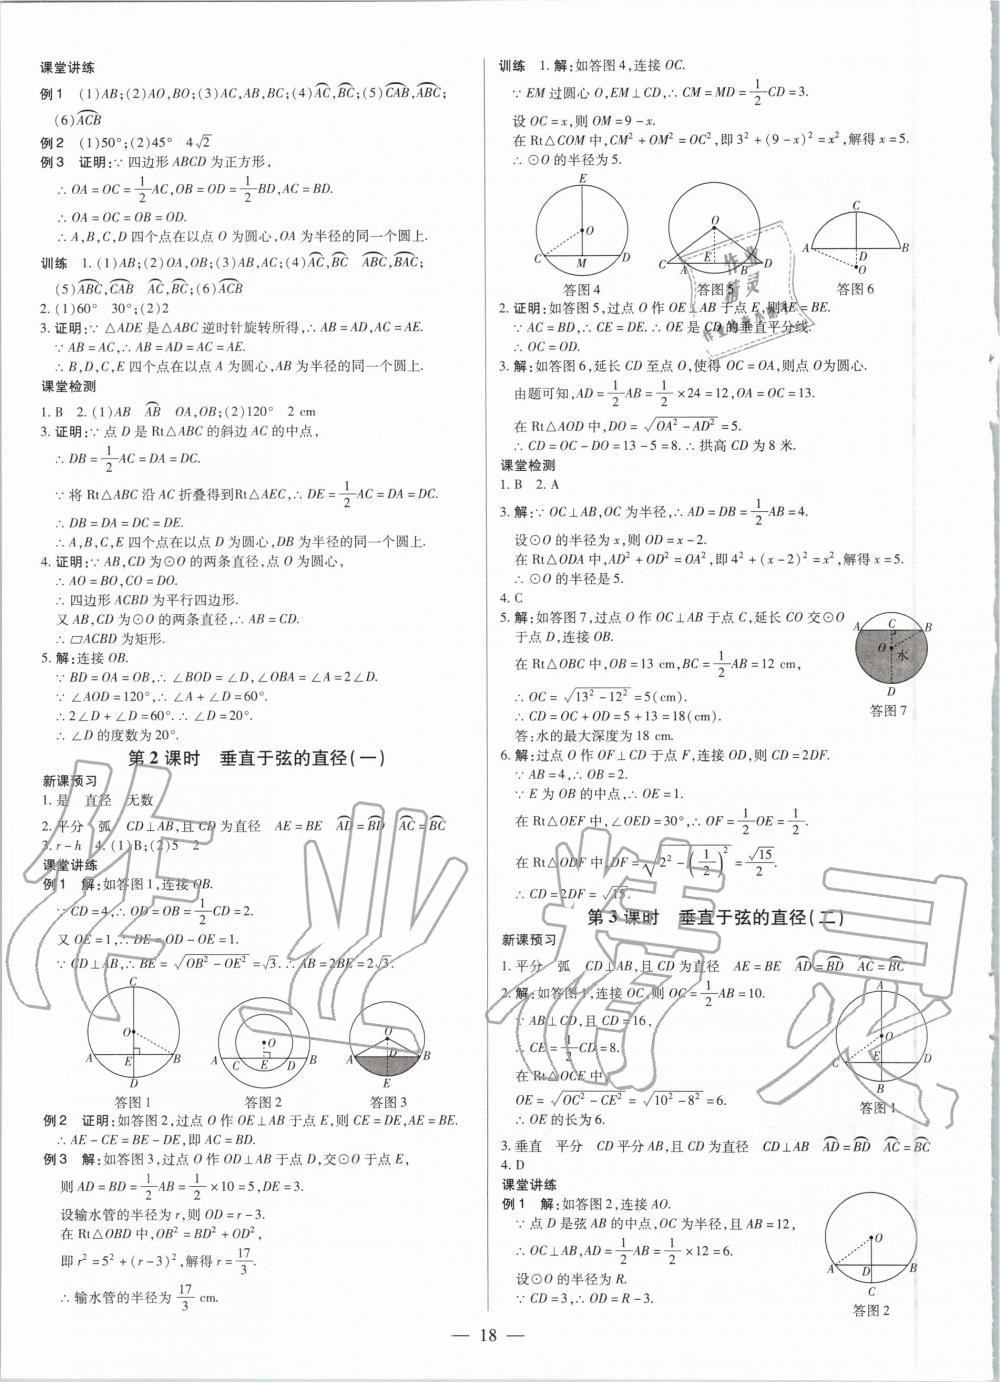 课堂讲练
例1 (1)AB;(2)AO,BO;(3)AC,AB,BC;(4)A͡C,B͡C;(5)C͡AB,A͡BC;
(6)A͡CB
例2 (1)50°;(2)45° 4√2
例3 证明:∵四边形ABCD为正方形,
∴OA=OC=1/2AC,OB=OD=1/2BD,AC=BD.
∴OA=OC=OB=OD.
∴A,B,C,D四个点在以点O为圆心,OA为半径的同一个圆上.
训练 1.(1)AB;(2)OA,OB;(3)AB,AC;(4)A͡C,B͡C A͡BC,B͡AC;
(5)A͡BC,C͡AB A͡C,B͡C;(6)A͡CB
2.(1)60° 30°;(2)2
3.证明:∵△ADE是△ABC逆时针旋转所得,∴AB=AD,AC=AE.
∵AB=AC,∴AB=AD=AC=AE.
∴B,D,C,E四个点在以点A为圆心,AB为半径的同一个圆上.
课堂检测
1.B 2.(1)AB A͡B OA,OB;(2)120° 2 cm
3.证明:∵点D是Rt△ABC的斜边AC的中点,
∴DB=1/2AC=DA=DC.
∵将Rt△ABC沿AC折叠得到Rt△AEC,∴DE=1/2AC=DA=DC.
∴DB=DA=DC=DE.
∴A,B,C,E四个点在以点D为圆心,DB为半径的同一个圆上.
4.证明:∵AB,CD为⊙O的两条直径,点O为圆心,
∴AO=BO,CO=DO.
∴四边形ACBD为平行四边形.
又AB,CD为⊙O的两条直径,∴AB=CD.
∴▱ACBD为矩形.
5.解:连接OB.
∵BD=OA=OB,∴∠BOD=∠D,∠OBA=∠A=2∠D.
∵∠AOD=120°,∴∠A+∠D=60°.
∴2∠D+∠D=60°.∴∠D=20°.
∴∠D的度数为20°.
第2课时 垂直于弦的直径(一)
新课预习
1.是 直径 无数
2.平分 弧 CD⊥AB,且CD为直径 AE=BE A͡D=B͡D A͡C=B͡C
3.r-h 4.(1)B;(2)5 2
课堂讲练
例1 解:如答图1,连接OB.
∵CD=4,∴OD=OB=1/2CD=2.
又OE=1,∴DE=OD-OE=1.
∵CD⊥AB,∴BE=√(OB²-OE²)=√3.∴AB=2BE=2√3.
C O A E B D
O A C E D B
O A D B E
答图1 答图2 答图3
例2 证明:如答图2,过点O作OE⊥AB于点E,则CE=DE,AE=BE.
∴AE-CE=BE-DE,即AC=BD.
例3 解:如答图3,过点O作OD⊥AB于点D,交⊙O于点E,
则AD=BD=1/2AB=1/2×10=5,DE=3.
设输水管的半径为r,则OD=r-3.
在Rt△OBD中,OB²=BD²+OD²,
即r²=5²+(r-3)²,解得r=17/3.
∴输水管的半径为17/3 cm.
训练 1.解:如答图4,连接OC.
∵EM过圆心O,EM⊥CD,∴CM=MD=1/2CD=3.
设OC=x,则OM=9-x.
在Rt△COM中,CM²+OM²=OC²,即3²+(9-x)²=x²,解得x=5.
∴⊙O的半径为5.
E O C M D
O C A E B D
C A D B O
答图4 答图5 答图6
2.证明:如答图5,过点O作OE⊥AB于点E,则AE=BE.
∵AC=BD,∴CE=DE.∴OE是CD的垂直平分线.
∴OC=OD.
3.解:如答图6,延长CD至点O,使得OC=OA,则点O为圆心.
由题可知,AD=1/2AB=1/2×24=12,OA=OC=13.
在Rt△AOD中,DO=√(OA²-AD²)=5.
∴CD=OC-DO=13-5=8.∴拱高CD为8米.
课堂检测
1.B 2.A
3.解:∵OC⊥AB,OC为半径,∴AD=DB=1/2AB=4.
设⊙O的半径为x,则OD=x-2.
在Rt△ODA中,AD²+OD²=OA²,即4²+(x-2)²=x²,解得x=5.
∴⊙O的半径是5.
4.C
5.解:如答图7,过点O作OC⊥AB于点C,延长CO交⊙O
于点D,连接OB.
在Rt△OBC中,OB=13 cm,BC=1/2AB=12 cm,
∴OC=√(13²-12²)=5(cm).
∴CD=OC+OD=5+13=18(cm).
答:水的最大深度为18 cm.
A C B O 水 D
答图7
6.解:过点O作OF⊥CD于点F,连接OD,则CD=2DF.
∵AB=4,∴OB=2.
∵E为OB的中点,∴OE=1.
在Rt△OEF中,∠OED=30°,∴OF=1/2OE=1/2.
在Rt△ODF中,DF=√(2²-(1/2)²)=√15/2.
∴CD=2DF=√15.
第3课时 垂直于弦的直径(二)
新课预习
1.平分 弧 CD⊥AB,且CD为直径 AE=BE A͡D=B͡D A͡C=B͡C
2.解:如答图1,连接OC,则OC=1/2AB=10.
∵AB⊥CD,且CD=16,
∴CE=1/2CD=8.
在Rt△OCE中,
OE=√(OC²-CE²)=√(10²-8²)=6.
∴OE的长为6.
A O C E D B
答图1
3.垂直 平分 CD平分AB,且CD为直径 CD⊥AB A͡D=B͡D A͡C=B͡C
4.D
课堂讲练
例1 解:如答图2,连接AO.
∵点D是弦AB的中点,OC为半径,且AB=12,
∴OC⊥AB,AD=1/2AB=1/2×12=6.
设⊙O的半径为R.
∵CD=3,∴OD=R-3.
O A D B C
答图2
— 18 —
作业精灵